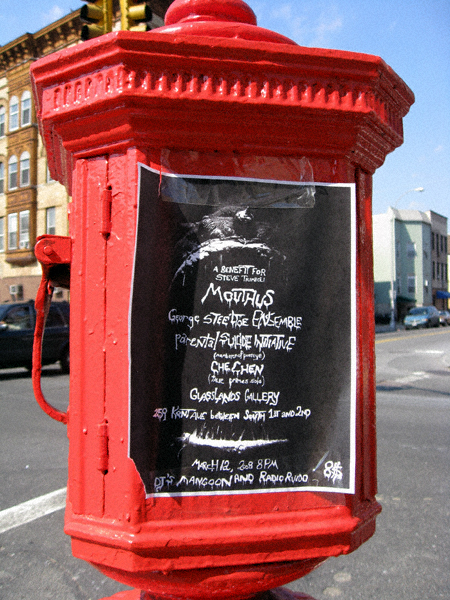 A BENEFIT FOR
STEVE
MOUTHUS
GEORGE STEELTOE ENSEMBLE
PARENTAL SUICIDE INITIATIVE
CHE CHEN
GLASSLANDS GALLERY
289 KENT AVE BETWEEN SOUTH 1ST AND 2ND
MARCH 12, 2008 8PM
DJ'S MANGOON AND RADIO RUIDO